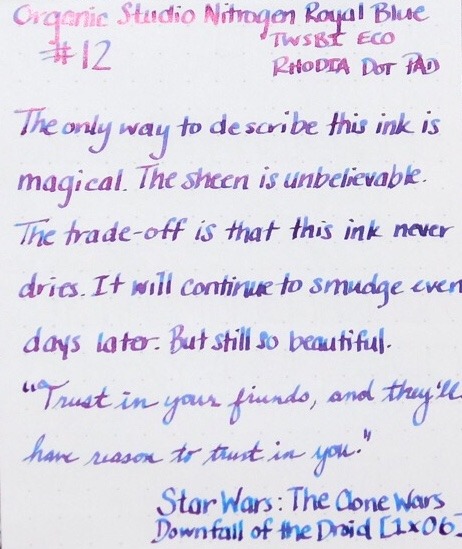 Organic Studio Nitrogen Royal Blue
#12
TWSBI ECO
RHODIA DOT PAD
The only way to describe this ink is
magical. The sheen is unbelievable.
The trade-off is that this ink never
dries. It will continue to smudge even
days later. But still so beautiful.
"Trust in your friends, and they'll
have reason to trust in you."
Star Wars: The Clone Wars
Downfall of the Droid [1x06